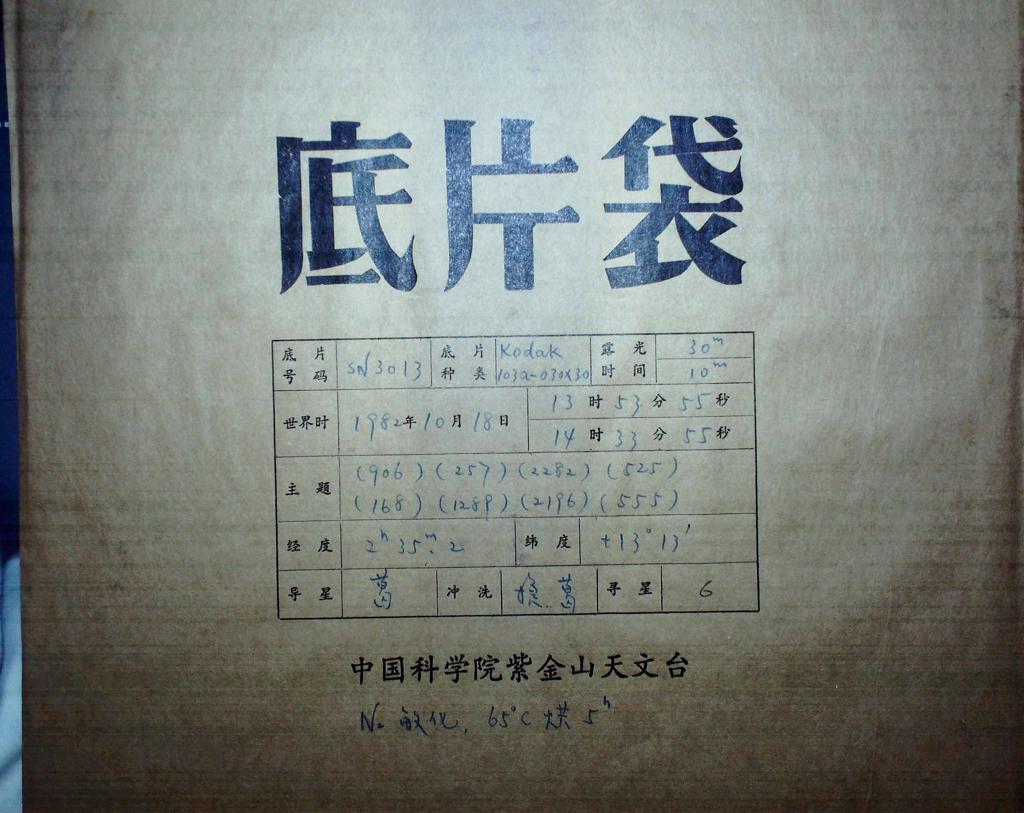 底片袋
底片号码 SN3013 底片种类 Kodak 103a-O30X30 露光时间 30ᵐ 10ᵐ
世界时 1982年10月18日 13时53分55秒
14时33分55秒
主题 (906) (257) (2282) (525)
(168) (1289) (2196) (555)
经度 2ʰ 35ᵐ.2 纬度 +13°13′
导星 葛 冲洗 葛 寻星 6
中国科学院紫金山天文台
N₂ 敏化, 65°C 烘 5ʰ